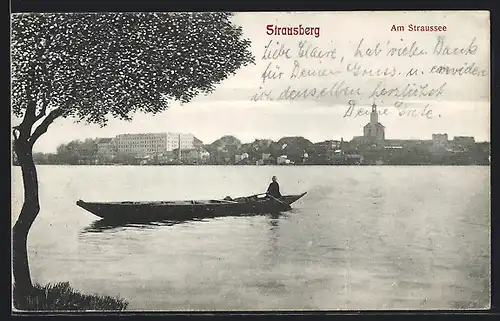 Strausberg
Am Straussee
Liebe Claire, hab' vielen Dank
für Deinen Gruss. u. erwidere
ich denselben herzlichst
Deine Grete.